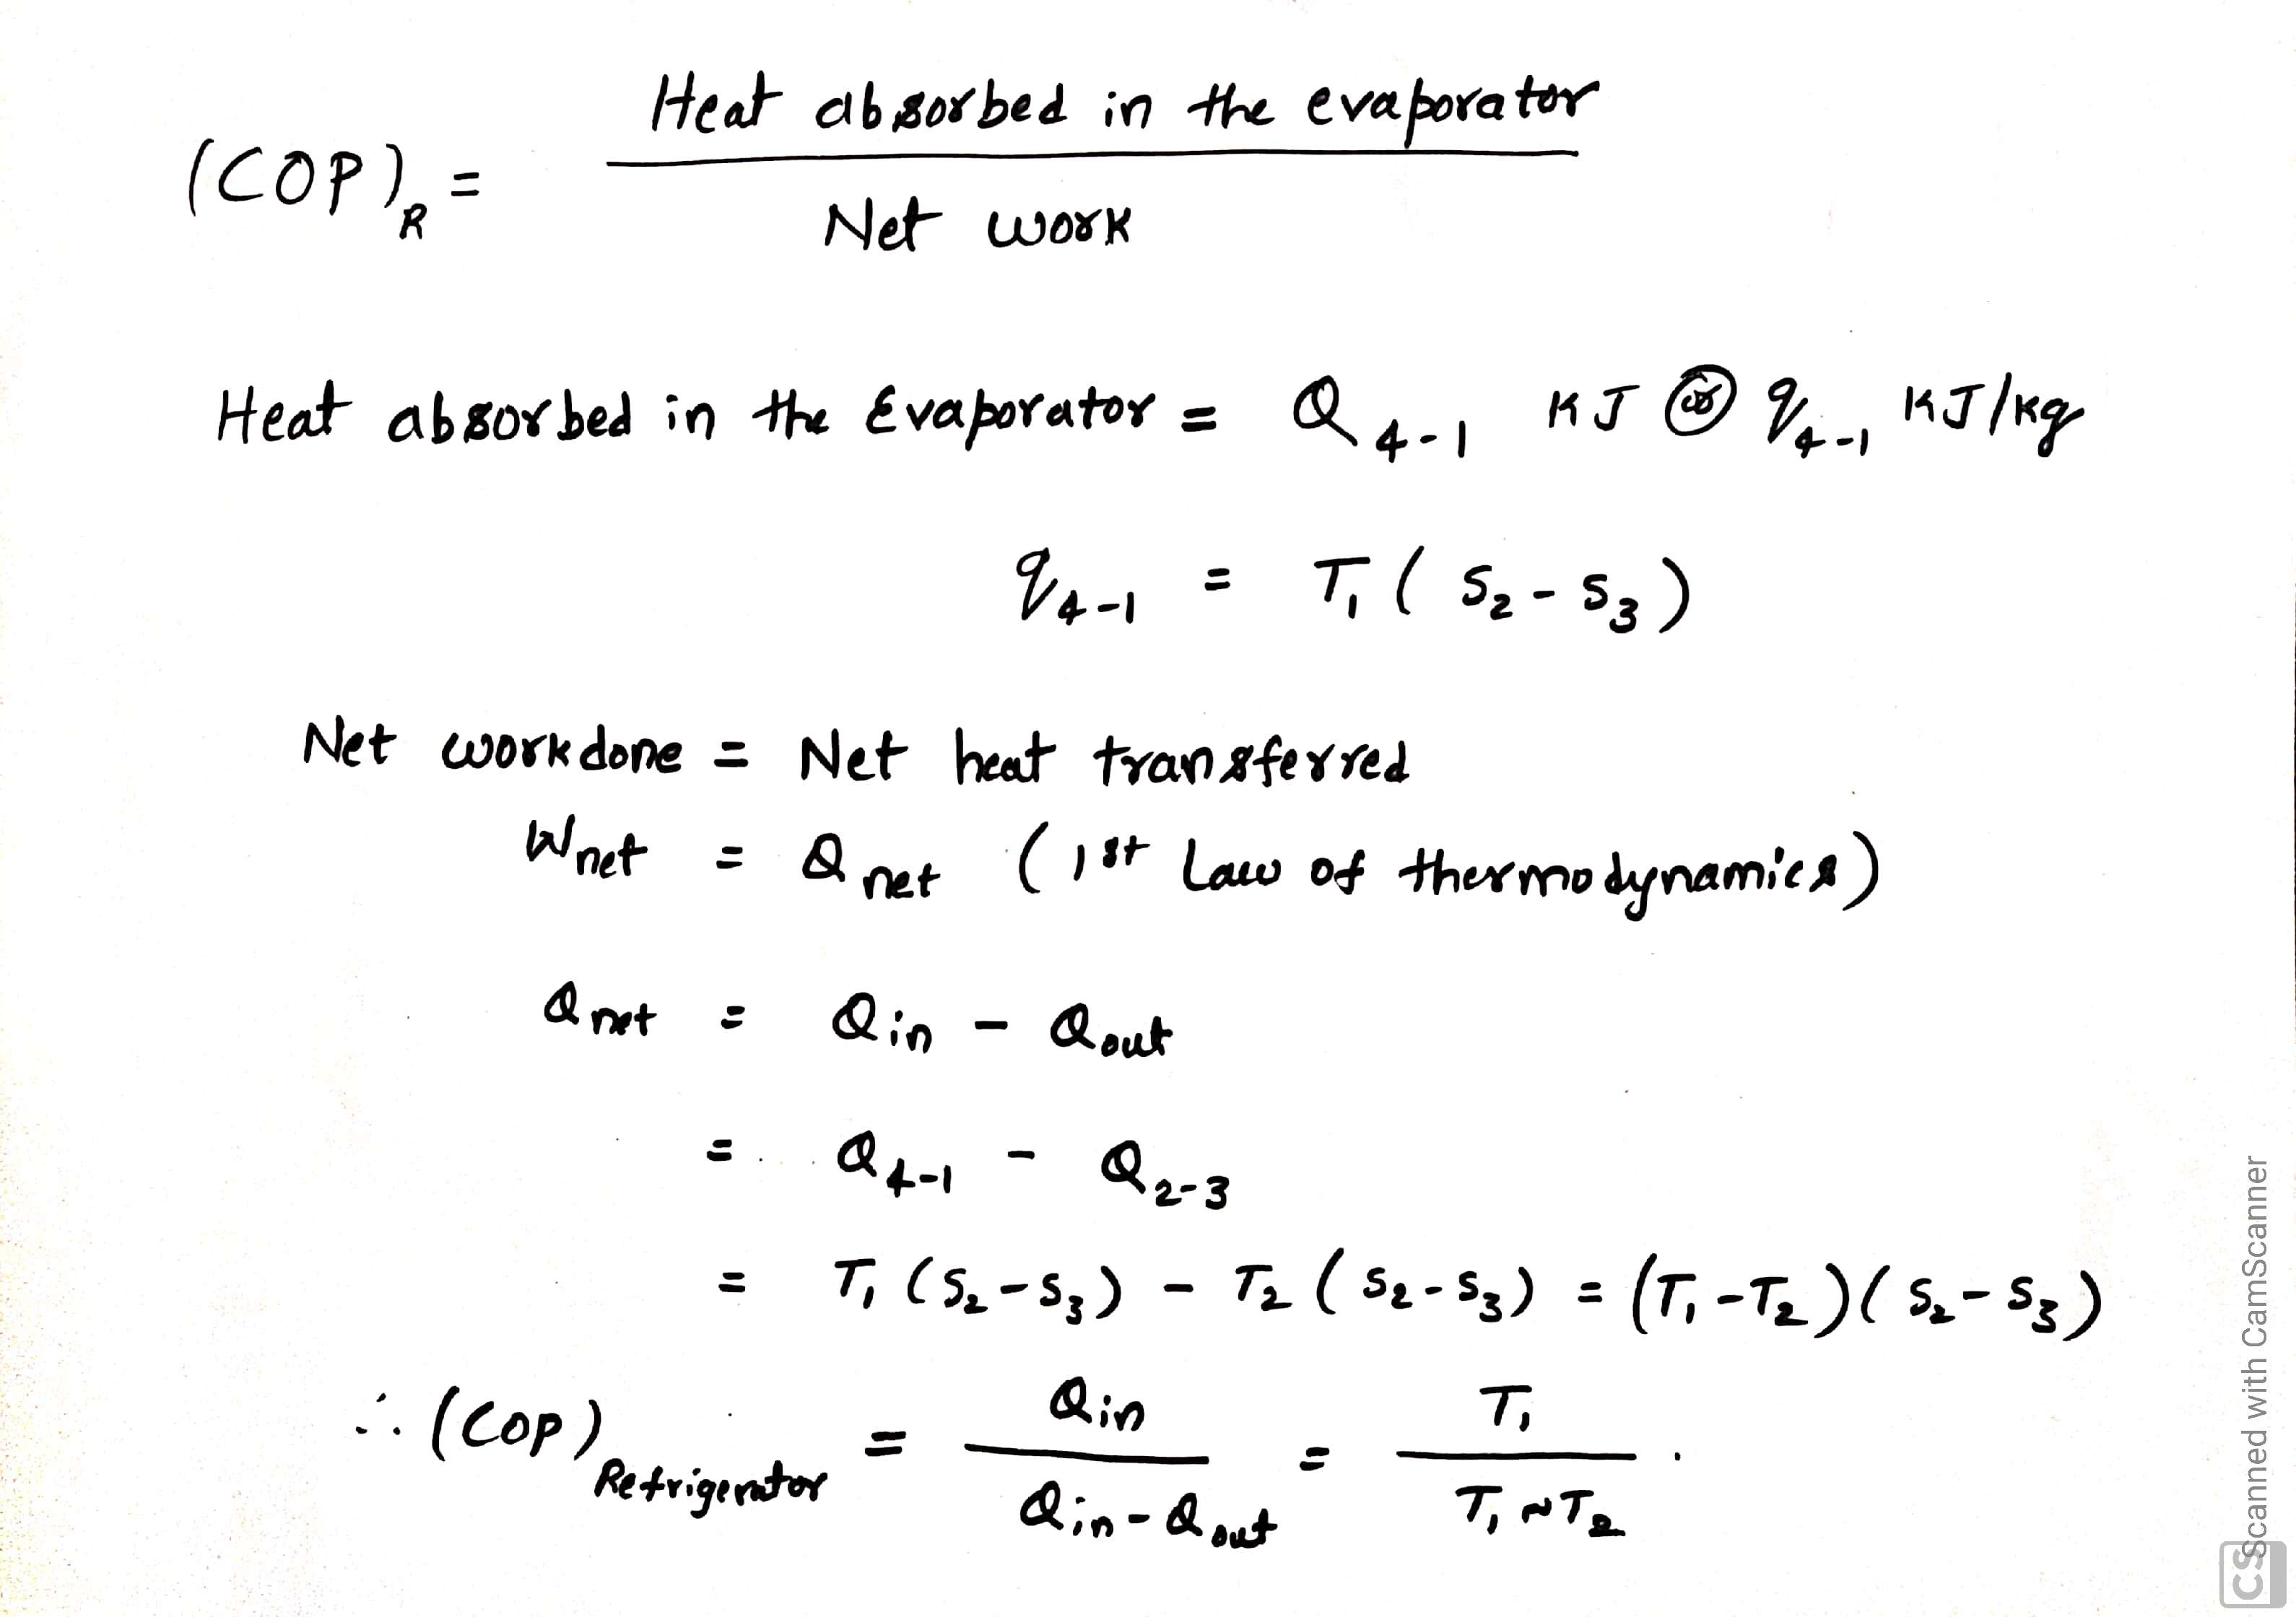 Heat absorbed in the evaporator
(COP)R =
Net work
Heat absorbed in the Evaporator = Q4-1 KJ (or) q4-1 KJ/kg
q4-1 = T1 ( S2 - S3 )
Net workdone = Net heat transferred
Wnet = Qnet (1st Law of thermodynamics)
Qnet = Qin - Qout
= Q4-1 - Q2-3
= T1 (S2 - S3) - T2 ( S2 - S3) = (T1 - T2)( S2 - S3)
∴ (COP)Refrigerator = Qin / Qin - Qout = T1 / T1 ~ T2 .
CS Scanned with CamScanner